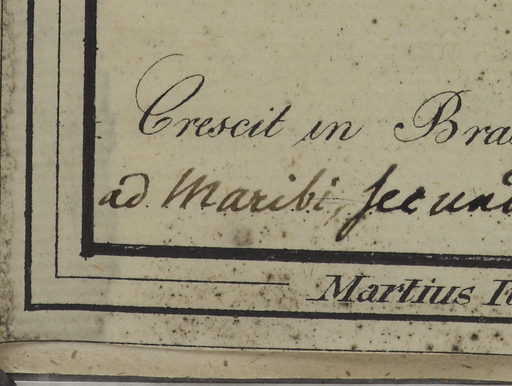 Crescit in Bra
ad Maribi, secund
Martius